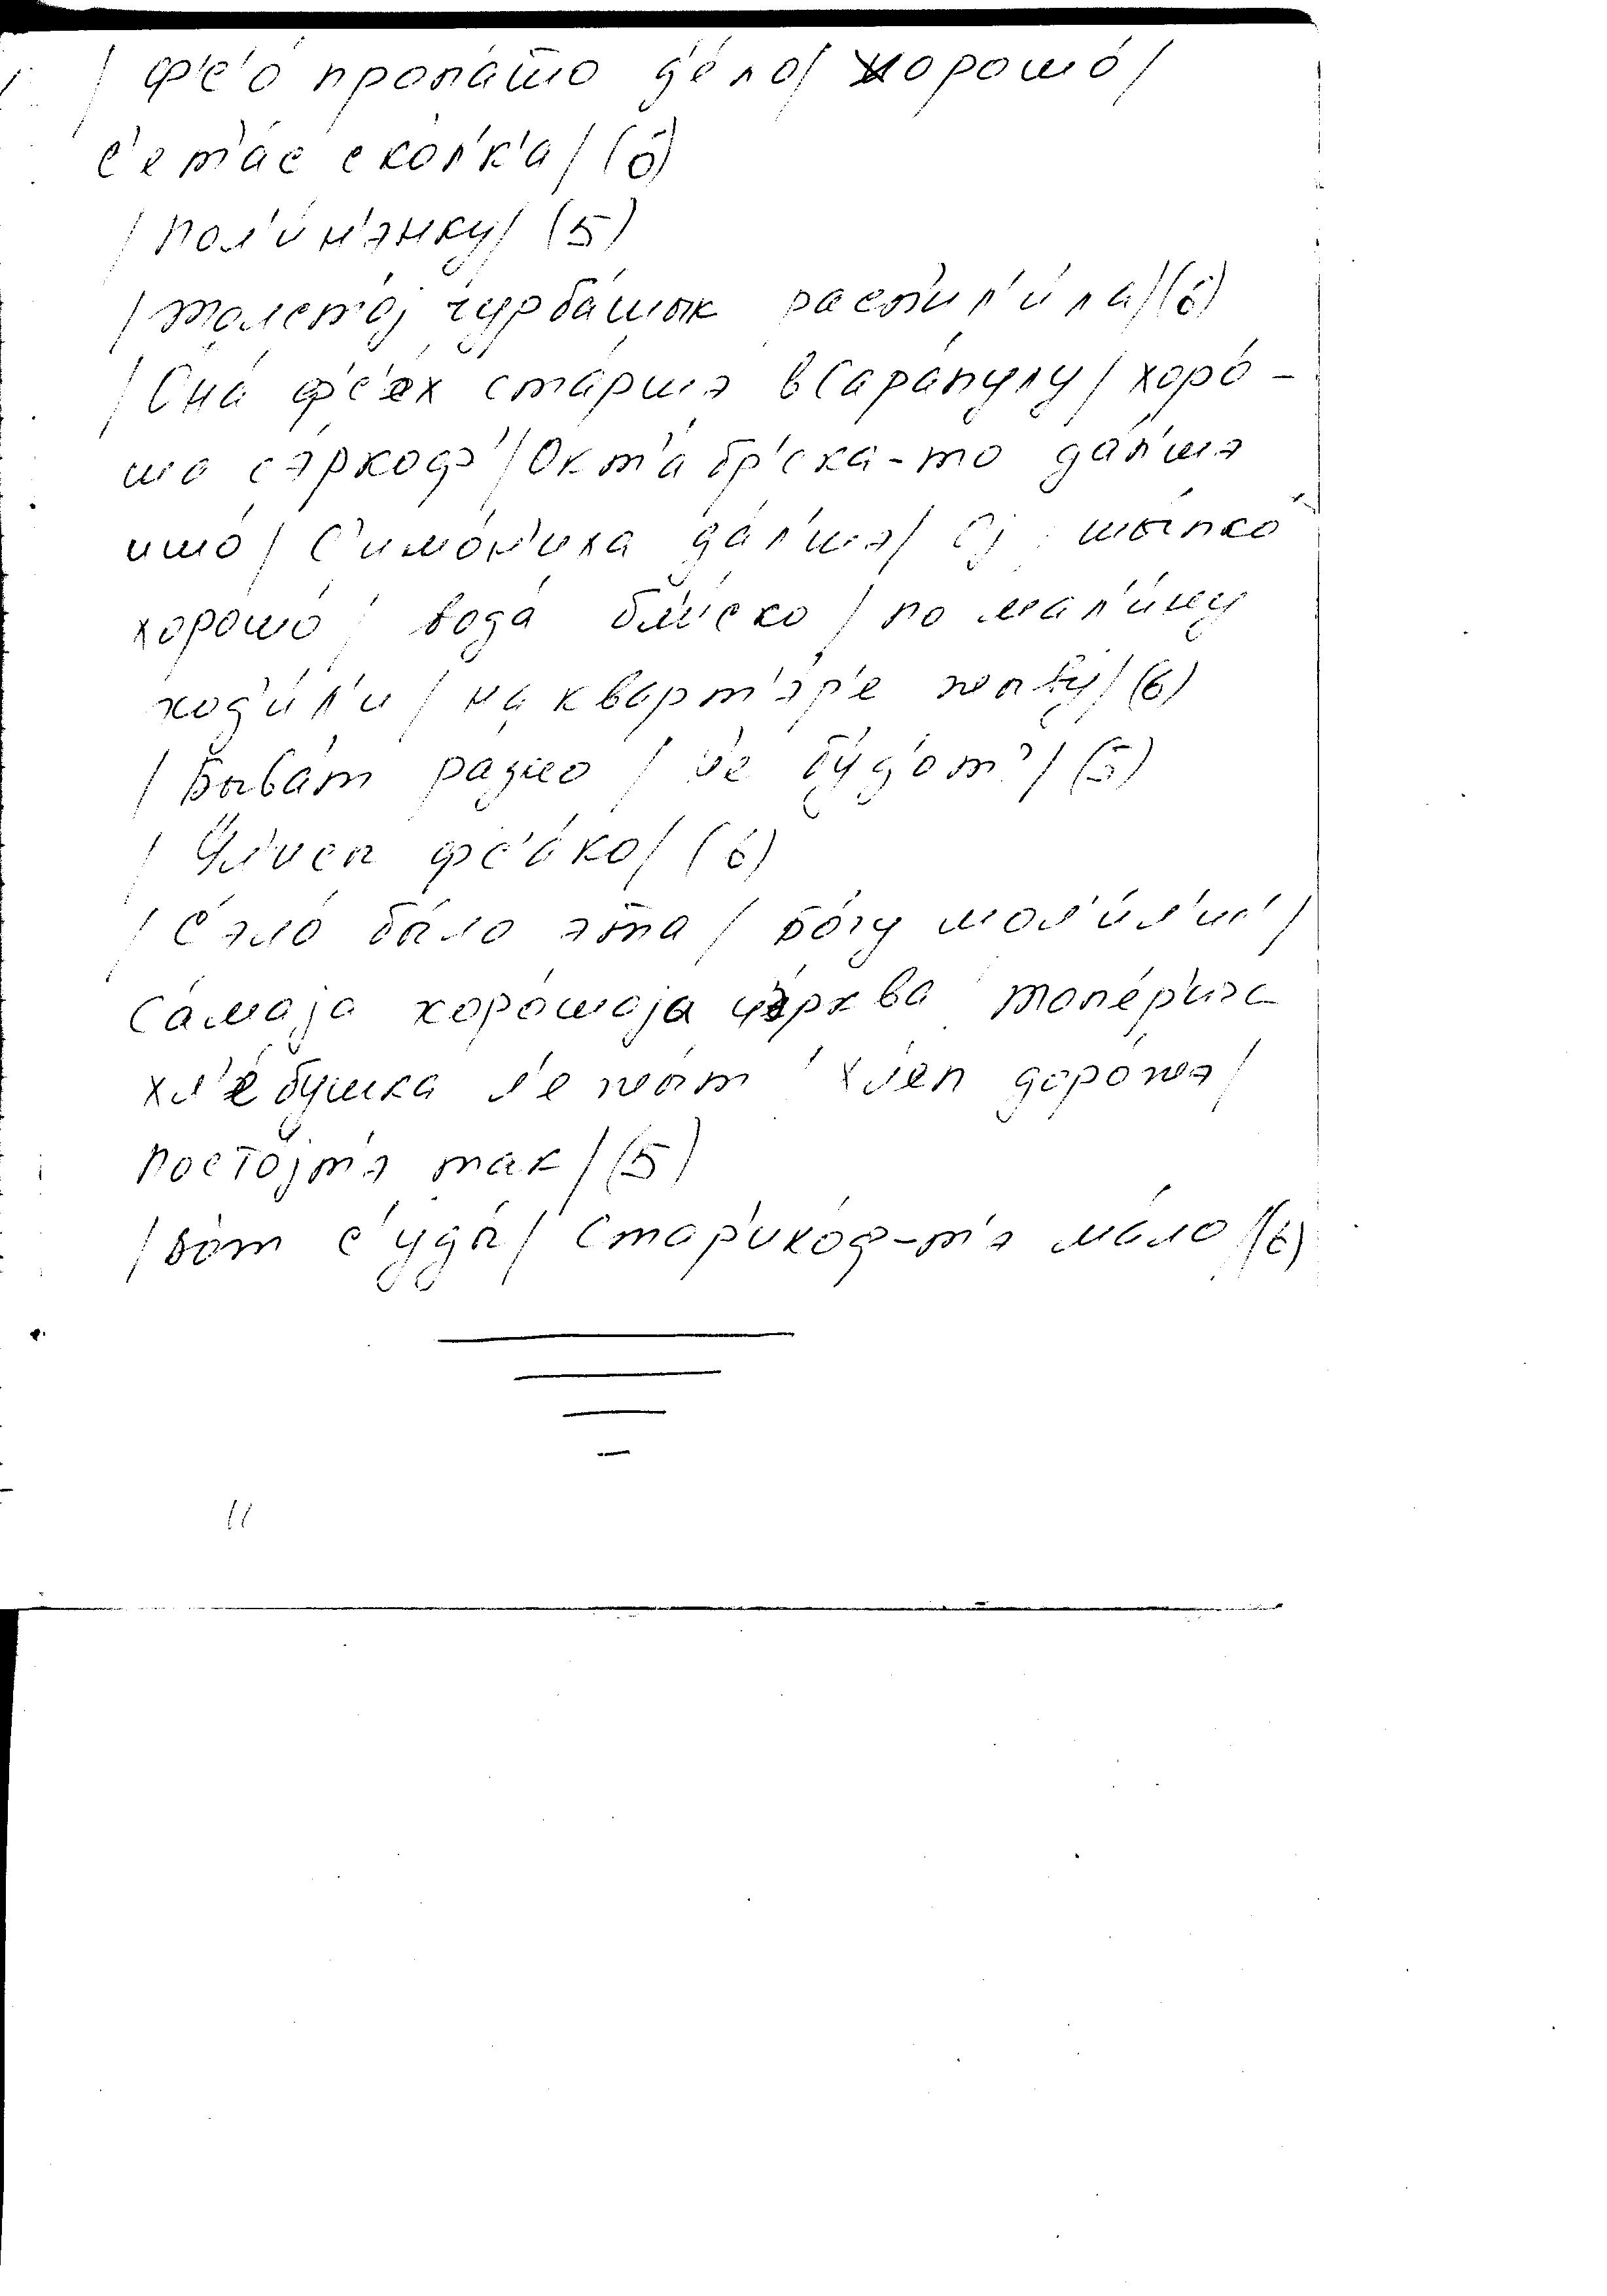 / ф'с'о́ пропа́шо д'е́ло/ хорошо́/
с'ет'а́с скол'к'а/ (6)
/ пол'и́н'энку/ (5)
/ толст'о́j чурба́шык расп'ил'и́ла/ (6)
/ Она́ ф'с'ех ста́ршэ в Сара́пулу/ хоро́-
шо сэркоф'/ Окт'а́бр'ска-то да́л'шэ
ишо́/ С'имо́н'иха да́л'шэ/ Oj шы́пко
хорошо́/ вода́ бл'и́ско/ по мал'и́ну
ход'и́л'и/ на кварт'э́р'е жыву́/ (6)
/ Быва́т разно/ с'е бу́д'от?/ (5)
/ ф'с'а́ко/ (6)
/ С'эло́ бы́ло э́та/ бо́гу мол'и́л'ис'/
са́маjа хоро́шаjа цэ́рква топе́р'иэс
хл'е́бушка л'ежы́т хл'еп доро́жэ/
посто́jт'э так/ (5)
/ во́т с'уды́/ стар'ико́ф-т'э ма́ло/ (6)
11